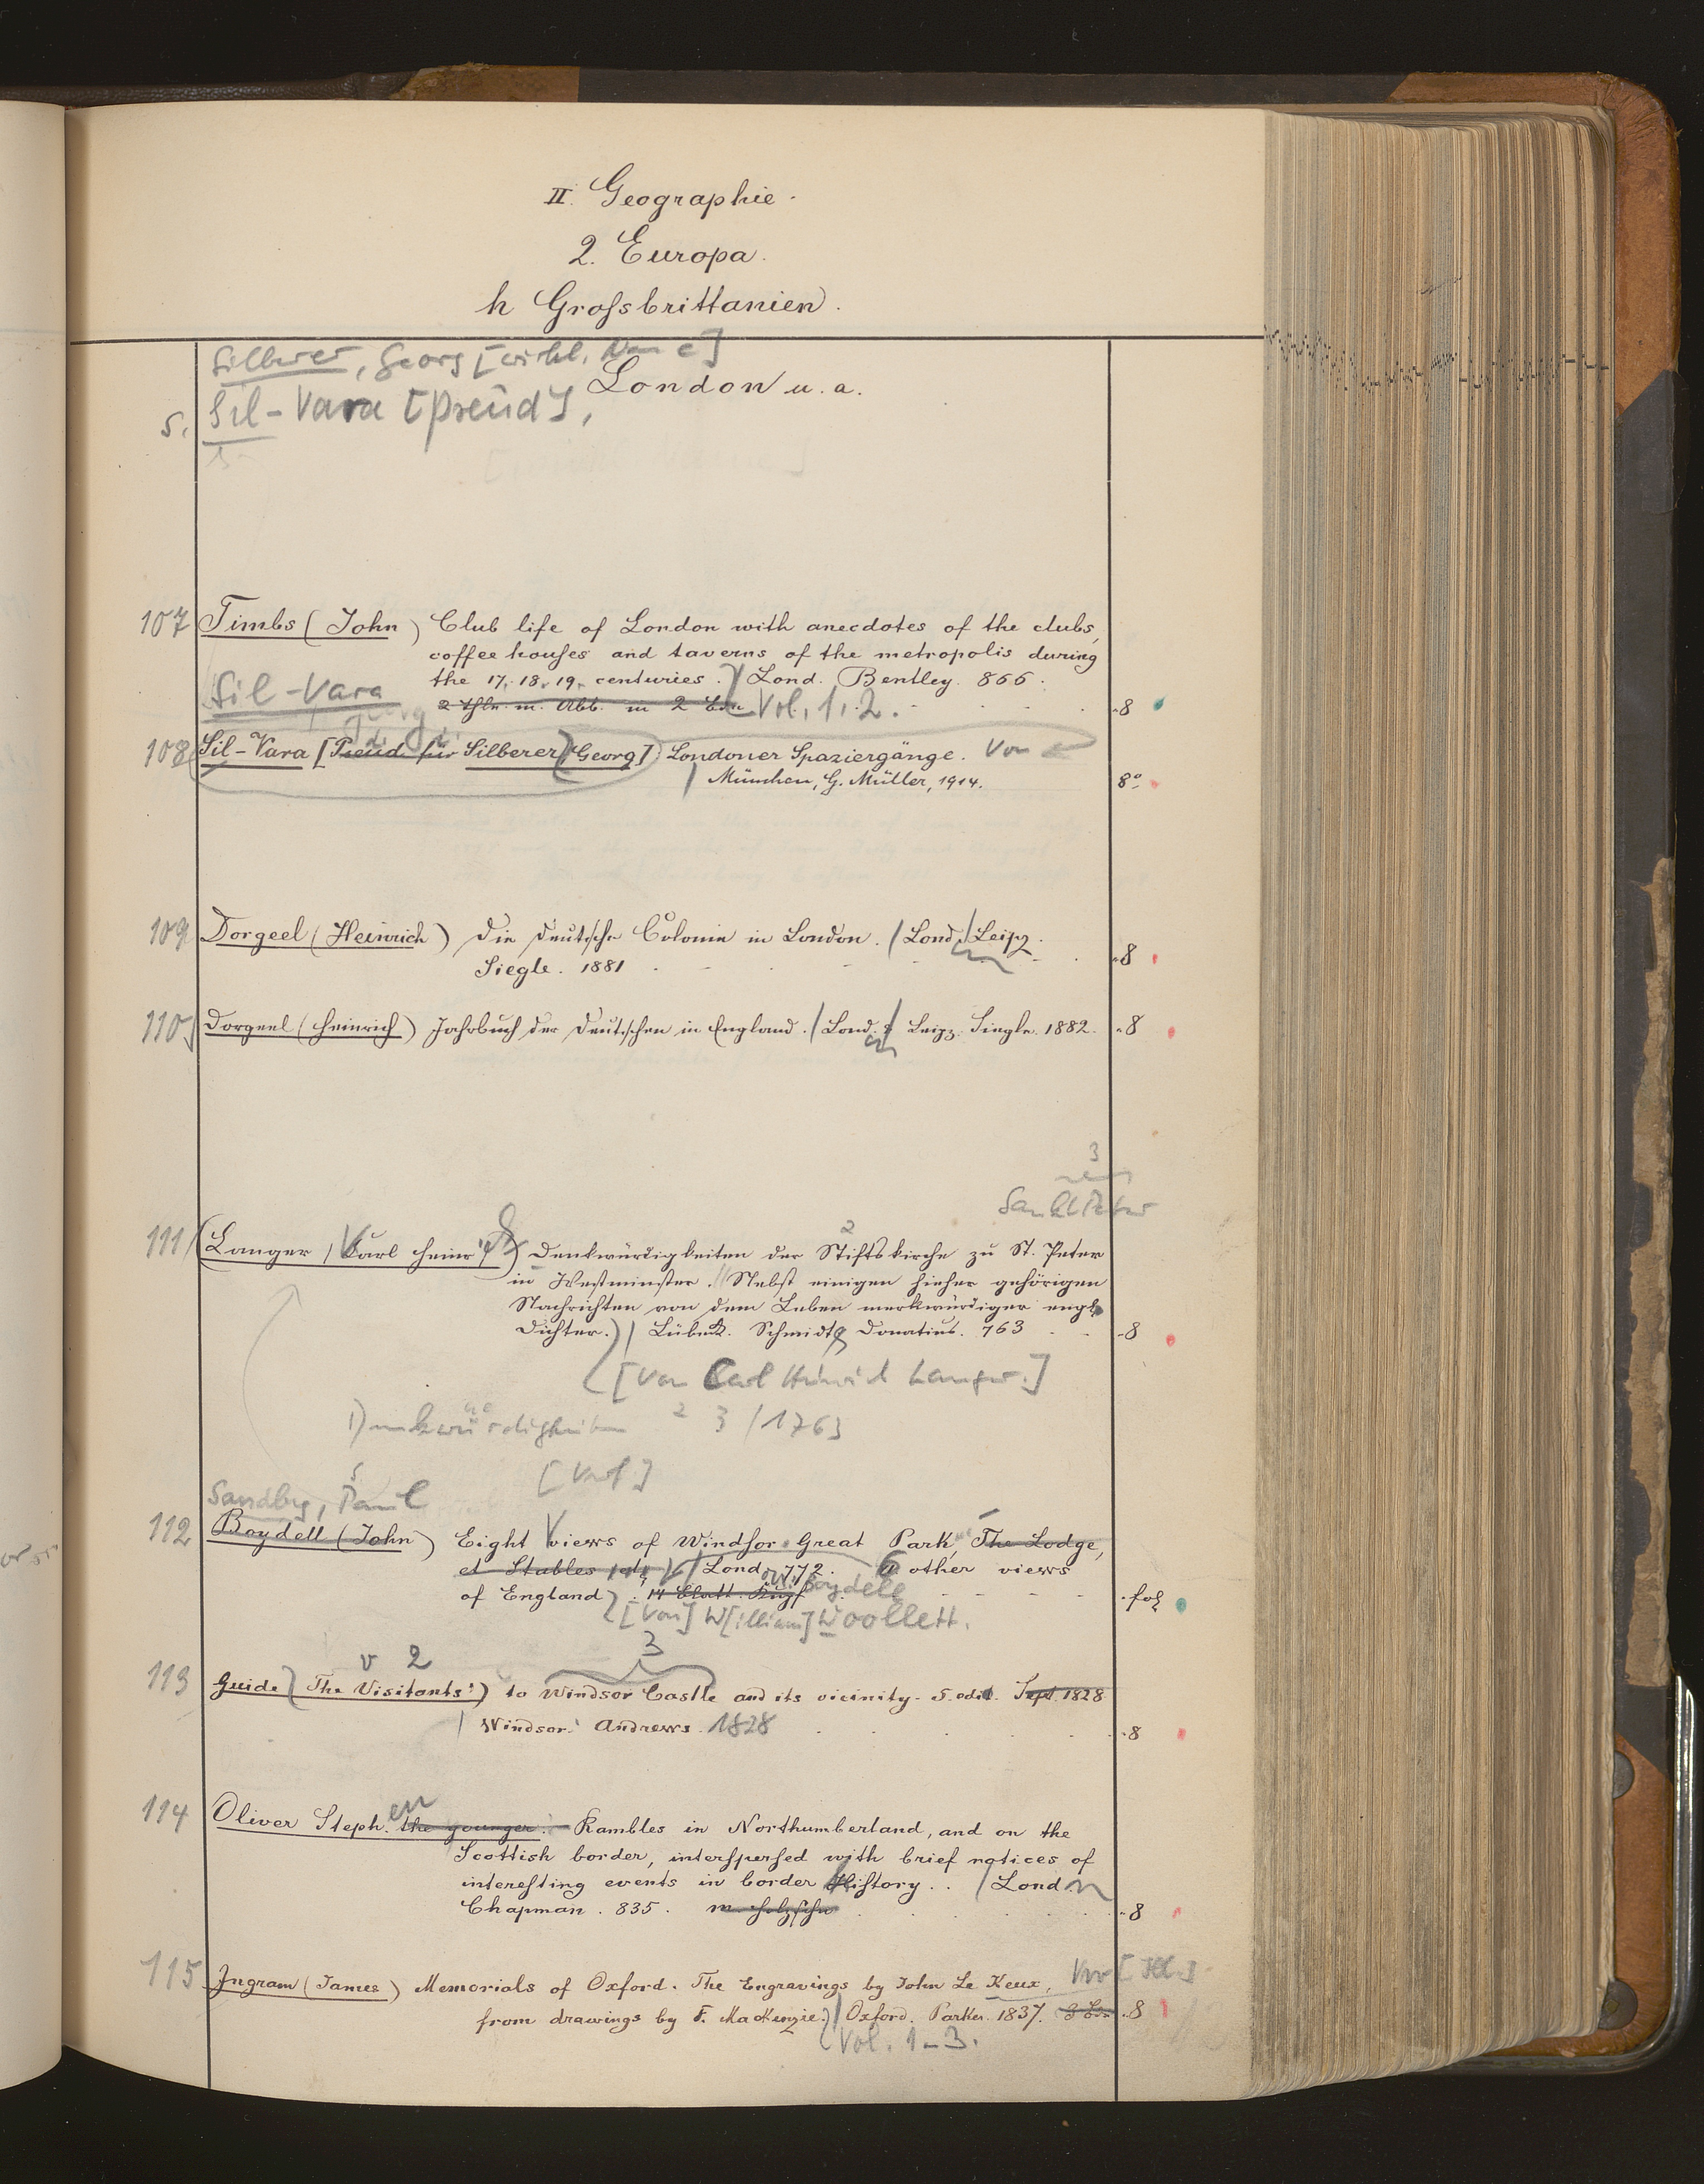 II. Geographie.
2. Europa.
h Großbrittanien.
Silberer, Georg [wirkl. Name]
London u. a.
s. Sil-Vara [Pseud],
107 Timbs (John) Club life of London with anecdotes of the clubs,
coffee houses and taverns of the metropolis during
the 17. 18. 19. centuries. Lond. Bentley. 866.
Sil-Vara
2 Thle. m. Abb. in 2 Bdn Vol. 1. 2. 8
Georg
108 Sil-Vara [Pseud. für Silberer (Georg)]: Londoner Spaziergänge. Von
München, G. Müller, 1914. 8°
109 Dorgeel (Heinrich) Die deutsche Colonie in London. Lond. Leipz.
Siegle. 1881 8
110 Dorgeel (Heinrich) Jahrbuch der Deutschen in England. Lond. & Leipz. Siegle. 1882. 8
3
Sankt Peter
2
111 Langer, Carl Heinr. Denkwürdigkeiten der Stiftskirche zu St. Peter
in Westminster. Nebst einigen hieher gehörigen
Nachrichten von dem Leben merkwürdiger engl.
Dichter. Lübeck. Schmidt & Donatius. 763 8
[Von Carl Heinrich Langer.]
1) nkwürdigkeiten 2 3 /1763
[Verf]
Sandby, Paul
112 Boydell (John) Eight views of Windsor Great Park, The Lodge,
et Stables etc. Lond. 772. 6 other views
of England. 14 Blatt. Kupf. Boydell fol
[Von] W[illiam] Woollett.
v 2 3
113 Guide (The Visitants') to Windsor Castle and its vicinity. 5. edit. Sept. 1828
Windsor. Andrews. 1828 8
en
114 Oliver Steph. the younger. Rambles in Northumberland, and on the
Scottish border, interspersed with brief notices of
interesting events in border History. Lond.
Chapman. 835. m. Holzschn. 8
115 Ingram (James) Memorials of Oxford. The Engravings by John Le Keux,
from drawings by F. Mackenzie. Oxford. Parker. 1837. 3 Bde 8
Vol. 1-3.